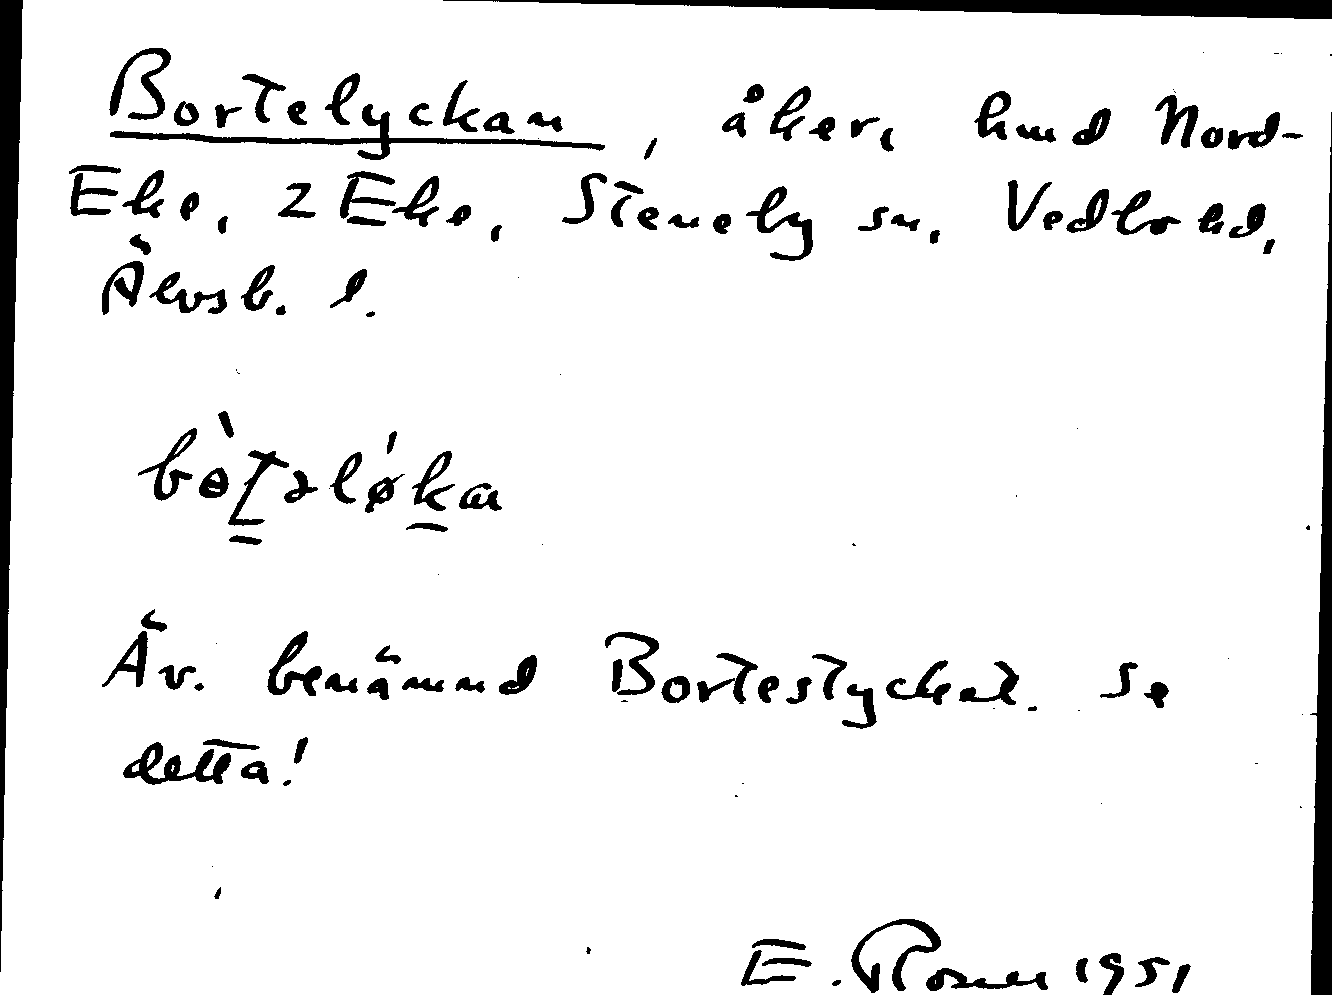 Bortelyckan, åker, hmd Nord-
Eke, 2 Eke, Steneby sn, Vedbo hd,
Älvsb. l.
Äv. benämnd Bortestycket. Se
detta!
E. Rosen 1951